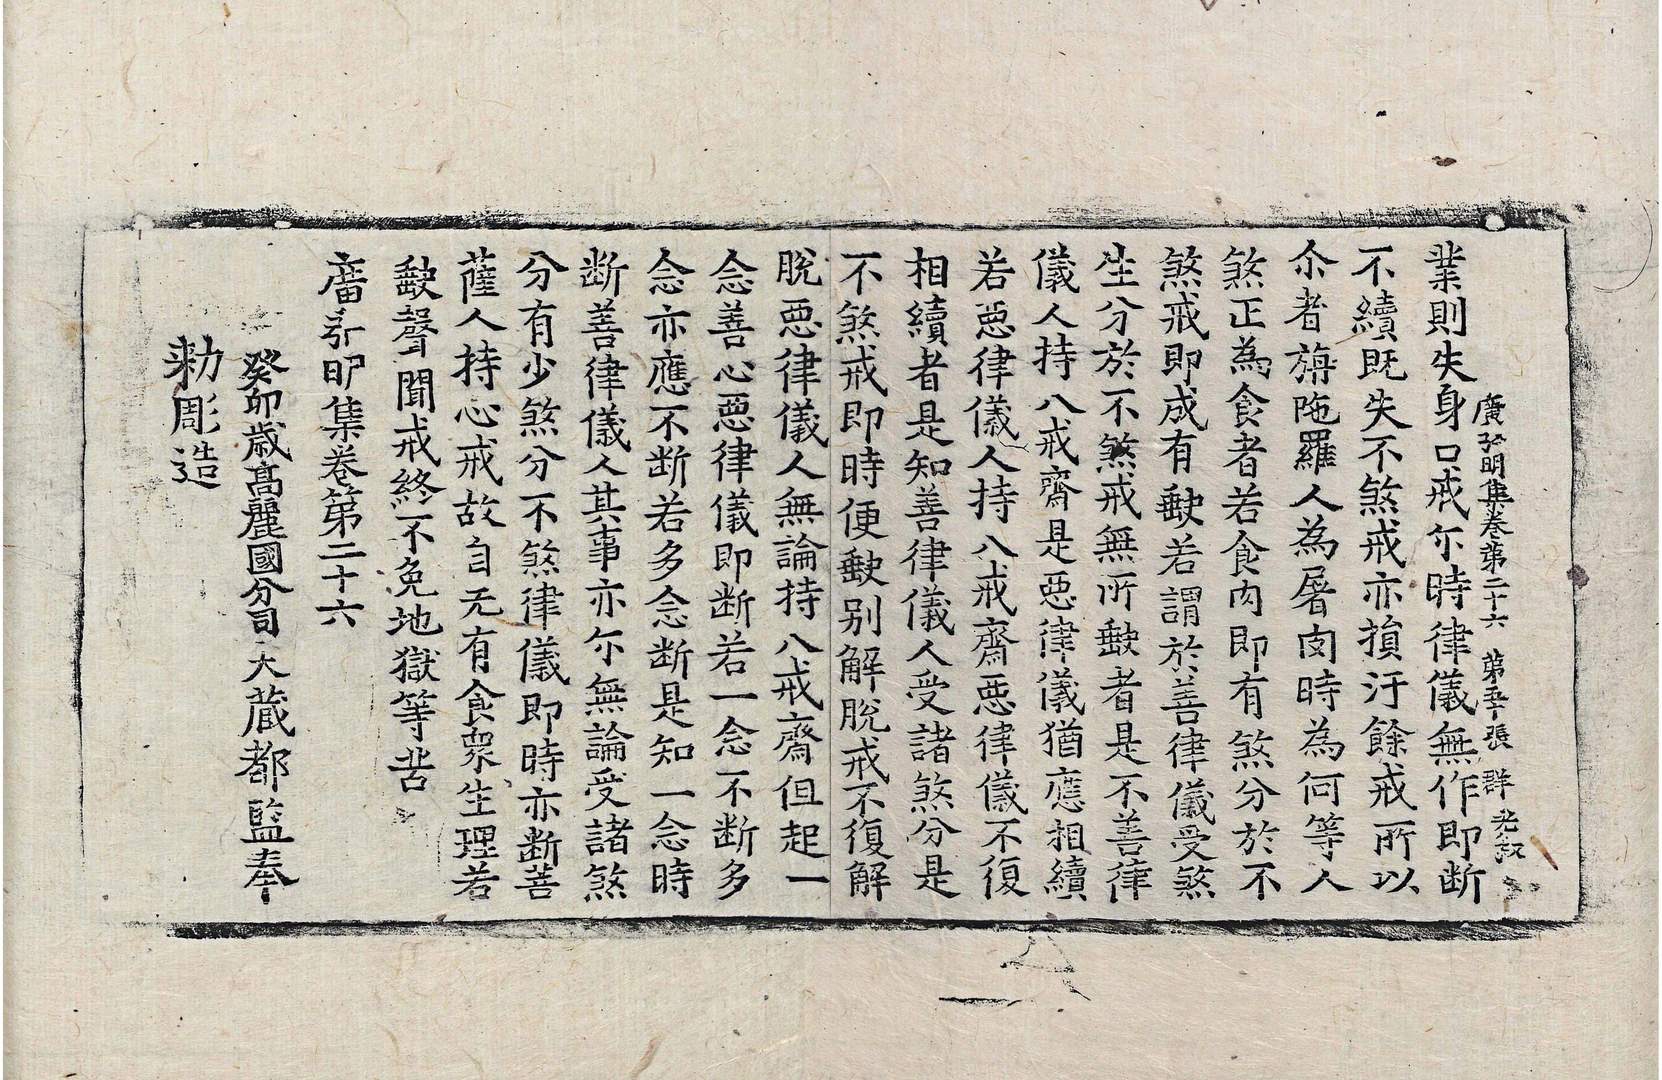 廣弘明集卷第二十六 第五十張 群
業則失身口戒尒時律儀無作即断
不續既失不煞戒亦損汙餘戒所以
尒者旃陁羅人為屠肉時為何等人
煞正為食者若食肉即有煞分於不
煞戒即成有缺若謂於善律儀受煞
生分於不煞戒無所缺者是不善律
儀人持八戒齋是惡律儀猶應相續
若惡律儀人持八戒齋惡律儀不復
相續者是知善律儀人受諸煞分是
不煞戒即時便缺别解脫戒不復解
脫惡律儀人無論持八戒齋但起一
念善心惡律儀即断若一念不断多
念亦應不断若多念断是知一念時
断善律儀人其事亦尒無論受諸煞
分有少煞分不煞律儀即時亦断菩
薩人持心戒故自无有食衆生理若
缺聲聞戒終不免地獄等苦
廣弘明集卷第二十六
癸卯歳高麗國分司大藏都監奉
勑彫造